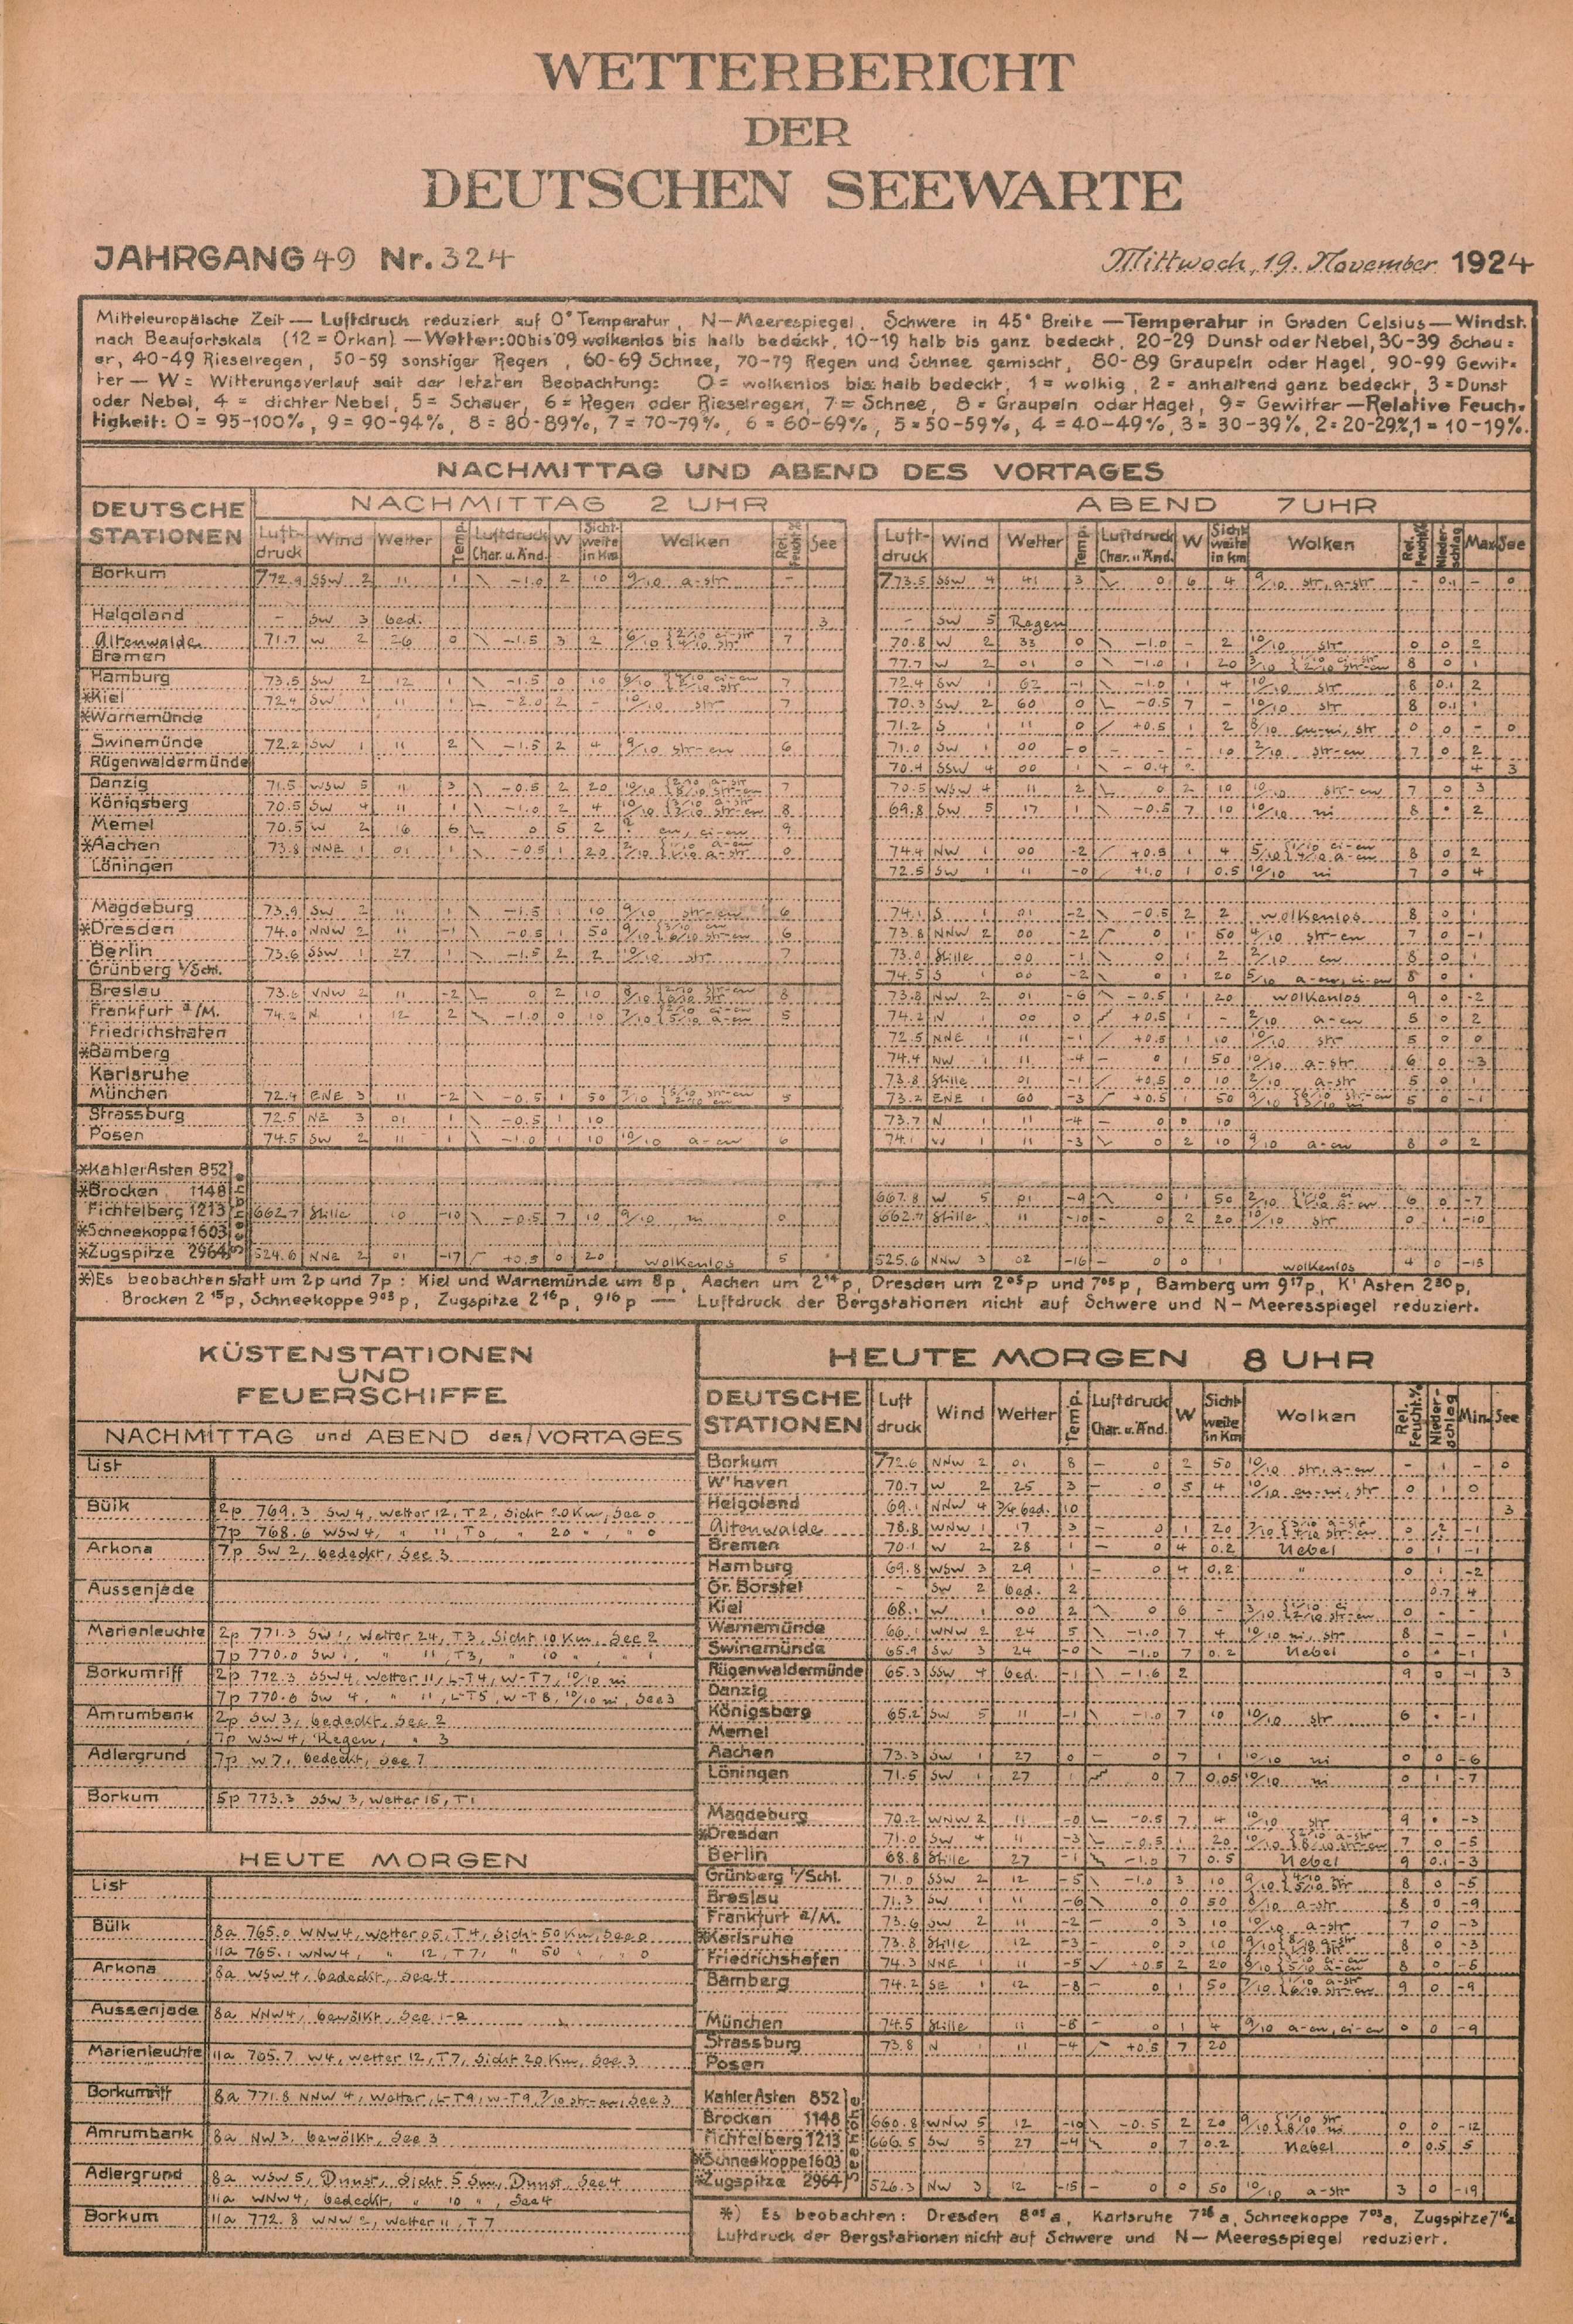 WETTERBERICHT
DER
DEUTSCHEN SEEWARTE
JAHRGANG 49 Nr. 324
Mittwoch, 19. November 1924
Mitteleuropäische Zeit — Luftdruck reduziert auf 0° Temperatur, N—Meerespiegel, Schwere in 45° Breite — Temperatur in Graden Celsius — Windst.
nach Beaufortskala (12 = Orkan) — Wetter: 00 bis 09 wolkenlos bis halb bedeckt, 10-19 halb bis ganz bedeckt, 20-29 Dunst oder Nebel, 30-39 Schau=
er, 40-49 Rieselregen, 50-59 sonstiger Regen, 60-69 Schnee, 70-79 Regen und Schnee gemischt, 80-89 Graupeln oder Hagel, 90-99 Gewit=
ter — W = Witterungsverlauf seit der letzten Beobachtung: 0 = wolkenlos bis halb bedeckt, 1 = wolkig, 2 = anhaltend ganz bedeckt, 3 = Dunst
oder Nebel, 4 = dichter Nebel, 5 = Schauer, 6 = Regen oder Rieselregen, 7 = Schnee, 8 = Graupeln oder Hagel, 9 = Gewitter — Relative Feuch=
tigkeit: 0 = 95-100%, 9 = 90-94%, 8 = 80-89%, 7 = 70-79%, 6 = 60-69%, 5 = 50-59%, 4 = 40-49%, 3 = 30-39%, 2 = 20-29%, 1 = 10-19%.
NACHMITTAG UND ABEND DES VORTAGES
DEUTSCHE STATIONEN
NACHMITTAG 2 UHR
ABEND 7 UHR
Luft-druck Wind Wetter Temp. Luftdruck Char. u. Änd. W Sicht-weite in Km Wolken Rel. Feucht.% See
Luft-druck Wind Wetter Temp. Luftdruck Char. u. Änd. W Sicht-weite in Km Wolken Rel. Feucht.% Nieder-schlag Max See
Borkum 772.9 SSW 2 11 1 -1.0 2 10 9/10 a-str - 773.5 SSW 4 41 3 0 6 4 9/10 str, a-str - 0.1 - 0
Helgoland - SW 3 bed. 3 - SW 5 Regen
Altenwalde 71.7 W 2 26 0 -1.5 3 2 7 70.8 W 2 33 0 -1.0 - 2 10/10 str 0 0 2
Bremen 77.7 W 2 01 0 -1.0 1 20 8 0 1
Hamburg 73.5 SW 2 12 1 -1.5 0 10 7 72.4 SW 1 62 -1 -1.0 1 4 10/10 str 8 0.1 2
*Kiel 72.4 SW 1 11 1 -2.0 2 - 10/10 str 7 70.3 SW 2 60 0 -0.5 7 - 10/10 str 8 0.1 1
*Warnemünde 71.2 S 1 11 0 +0.5 1 2 8/10 cu-ni, str 0 0 - 0
Swinemünde 72.2 SW 1 11 2 -1.5 2 4 9/10 str-cu 6 71.0 SW 1 00 -0 - - - 10 2/10 str-cu 7 0 2
Rügenwaldermünde 70.4 SSW 4 00 1 -0.4 2 4 3
Danzig 71.5 WSW 5 11 3 -0.5 2 20 7 70.5 WSW 4 11 2 0 2 10 10/10 str-cu 7 0 3
Königsberg 70.5 SW 4 11 1 -1.0 2 4 8 69.8 SW 5 17 1 -0.5 7 10 10/10 ni 8 • 2
Memel 70.5 W 2 16 6 0 5 2 cu, ci-cu 9
*Aachen 73.8 NNE 1 01 1 -0.5 1 20 0 74.4 NW 1 00 -2 +0.5 1 4 8 0 2
Löningen 72.5 SW 1 11 -0 +1.0 1 0.5 10/10 ni 7 0 4
Magdeburg 73.9 SW 2 11 1 -1.5 1 10 9/10 str-cu 6 74.1 S 1 01 -2 -0.5 2 2 wolkenlos 8 0 1
*Dresden 74.0 NNW 2 11 -1 -0.5 1 50 6 73.8 NNW 2 00 -2 0 1 50 4/10 str-cu 7 0 -1
Berlin 73.6 SSW 1 27 1 -1.5 2 2 9/10 str 7 73.0 Stille 00 -1 0 1 2 2/10 cu 8 0 1
Grünberg i/Schl. 74.5 S 1 00 -2 0 1 20 5/10 a-cu, ci-cu 8 0 1
Breslau 73.6 WNW 2 11 -2 0 2 10 8 73.8 NW 2 01 -6 -0.5 1 20 wolkenlos 9 0 -2
Frankfurt a/M. 74.2 N 1 12 2 -1.0 0 10 5 74.2 N 1 00 0 +0.5 1 - 2/10 a-cu 5 0 2
Friedrichshafen 72.5 NNE 1 11 -1 +0.5 1 10 10/10 str 5 0 0
*Bamberg 74.4 NW 1 11 -4 0 1 50 10/10 a-str 6 0 -3
Karlsruhe 73.8 Stille 01 -1 +0.5 0 10 2/10 a-str 5 0 1
München 72.4 ENE 3 11 -2 -0.5 1 50 5 73.2 ENE 1 60 -3 +0.5 1 50 5 0 -1
Strassburg 72.5 NE 3 01 1 -0.5 1 10 73.7 N 1 11 -4 0 0 10
Posen 74.5 SW 2 11 1 -1.0 1 10 10/10 a-cu 6 74.1 W 1 11 -3 0 2 10 9/10 a-cu 8 0 2
*Kahler Asten 852
*Brocken 1148 667.8 W 5 01 -9 0 1 50 6 0 -7
Fichtelberg 1213 662.7 Stille 10 -10 -0.5 7 10 9/10 ni 0 662.7 Stille 11 -10 0 2 20 10/10 str 0 1 -10
*Schneekoppe 1603
*Zugspitze 2964 524.6 NNE 2 01 -17 +0.5 0 20 wolkenlos 5 525.6 NNW 3 02 -16 0 0 1 wolkenlos 4 0 -15
*) Es beobachten statt um 2p und 7p: Kiel und Warnemünde um 8p, Aachen um 2¹⁴p, Dresden um 2⁰⁵p und 7⁰⁵p, Bamberg um 9¹⁷p, K' Asten 2³⁰p,
Brocken 2¹⁵p, Schneekoppe 9⁰³p, Zugspitze 2¹⁶p, 9¹⁶p — Luftdruck der Bergstationen nicht auf Schwere und N—Meeresspiegel reduziert.
KÜSTENSTATIONEN
UND
FEUERSCHIFFE
NACHMITTAG und ABEND des VORTAGES
List
Bülk 2p 769.3 SW 4, Wetter 12, T2, Sicht 20 Km, See 0
7p 768.6 WSW 4, " 11, T0, " 20 ", " 0
Arkona 7p SW 2, bedeckt, See 3
Aussenjade
Marienleuchte 2p 771.3 SW 1, Wetter 24, T3, Sicht 10 Km, See 2
7p 770.0 SW 1, " 11, T3, " 10 ", " 1
Borkumriff 2p 772.3 SSW 4, Wetter 11, L-T4, W-T7, 10/10 ni
7p 770.6 SW 4, " 11, L-T5, W-T8, 10/10 ni, See 3
Amrumbank 2p SW 3, bedeckt, See 2
7p WSW 4, Regen, " 3
Adlergrund 7p W 7, bedeckt, See 7
Borkum 5p 773.3 SSW 3, Wetter 15, T1
HEUTE MORGEN
List
Bülk 8a 765.0 WNW 4, Wetter 05, T4, Sicht 50 Km, See 0
11a 765.1 WNW 4, " 12, T7, " 50 ", " 0
Arkona 8a WSW 4, bedeckt, See 4
Aussenjade 8a NNW 4, bewölkt, See 1-2
Marienleuchte 11a 765.7 W 4, Wetter 12, T7, Sicht 20 Km, See 3
Borkumriff 8a 771.8 NNW 4, Wetter, L-T9, W-T9, 7/10 str-cu, See 3
Amrumbank 8a NW 3, bewölkt, See 3
Adlergrund 8a WSW 5, Dunst, Sicht 5 Sm, Dunst, See 4
11a WNW 4, bedeckt, " 10 ", See 4
Borkum 11a 772.8 WNW 2, Wetter 11, T7
HEUTE MORGEN 8 UHR
DEUTSCHE STATIONEN Luft druck Wind Wetter Temp. Luftdruck Char. u. Änd. W Sicht-weite in Km Wolken Rel. Feucht.% Nieder-schlag Min. See
Borkum 772.6 NNW 2 01 8 0 2 50 10/10 str, a-cu - 1 - 0
W'haven 70.7 W 2 25 3 0 5 4 10/10 cu-ni, str 0 1 0
Helgoland 69.1 NNW 4 3/4 bed. 10 3
Altenwalde 78.8 WNW 1 17 3 0 1 20 0 2 -1
Bremen 70.1 W 2 28 1 0 4 0.2 Nebel 0 1 -1
Hamburg 69.8 WSW 3 29 1 0 4 0.2 " 0 1 -2
Gr. Borstel - SW 2 bed. 2 0.7 4
Kiel 68.1 W 1 00 2 0 6 - 0 - -
Warnemünde 66.1 WNW 2 24 5 -1.0 7 4 10/10 ni, str 8 - - 1
Swinemünde 65.9 SW 3 24 -0 -1.0 7 0.2 Nebel 0 • -1
Rügenwaldermünde 65.3 SSW 4 bed. -1 -1.6 2 9 0 -1 3
Danzig
Königsberg 65.2 SW 5 11 -1 -1.0 7 10 10/10 str 6 • -1
Memel
Aachen 73.3 SW 1 27 0 0 7 1 10/10 ni 0 0 -6
Löningen 71.5 SW 1 27 1 0 7 0.05 10/10 ni 0 1 -7
Magdeburg 70.2 WNW 2 11 -0 -0.5 7 4 10/10 str 9 • -3
*Dresden 71.0 SW 4 11 -3 -0.5 1 20 7 0 -5
Berlin 68.8 Stille 27 -1 -1.0 7 0.5 Nebel 9 0.1 -3
Grünberg i/Schl. 71.0 SSW 2 12 -5 -1.0 3 10 8 0 -5
Breslau 71.3 SW 1 11 -6 0 0 50 8/10 a-str 8 0 -9
Frankfurt a/M. 73.6 SW 2 11 -2 0 3 10 10/10 a-str 7 0 -3
*Karlsruhe 73.8 Stille 12 -3 0 0 10 8 0 -3
Friedrichshafen 74.3 NNE 1 11 -5 +0.5 2 20 8 0 -5
Bamberg 74.2 SE 1 12 -8 0 1 50 9 0 -9
München 74.5 Stille 11 -8 0 1 4 9/10 a-cu, ci-cu 0 0 -9
Strassburg 73.8 N 1 11 -4 +0.5 7 20
Posen
Kahler Asten 852
Brocken 1148 660.8 WNW 5 12 -10 -0.5 2 20 0 0 -12
Fichtelberg 1213 666.5 SW 5 27 -4 0 7 0.2 Nebel 0 0.5 5
*Schneekoppe 1603
*Zugspitze 2964 526.3 NW 3 12 -15 0 0 50 10/10 a-str 3 0 -19
*) Es beobachten: Dresden 8⁰⁵a, Karlsruhe 7²⁶a, Schneekoppe 7⁰³a, Zugspitze 7¹⁶a
Luftdruck der Bergstationen nicht auf Schwere und N—Meeresspiegel reduziert.